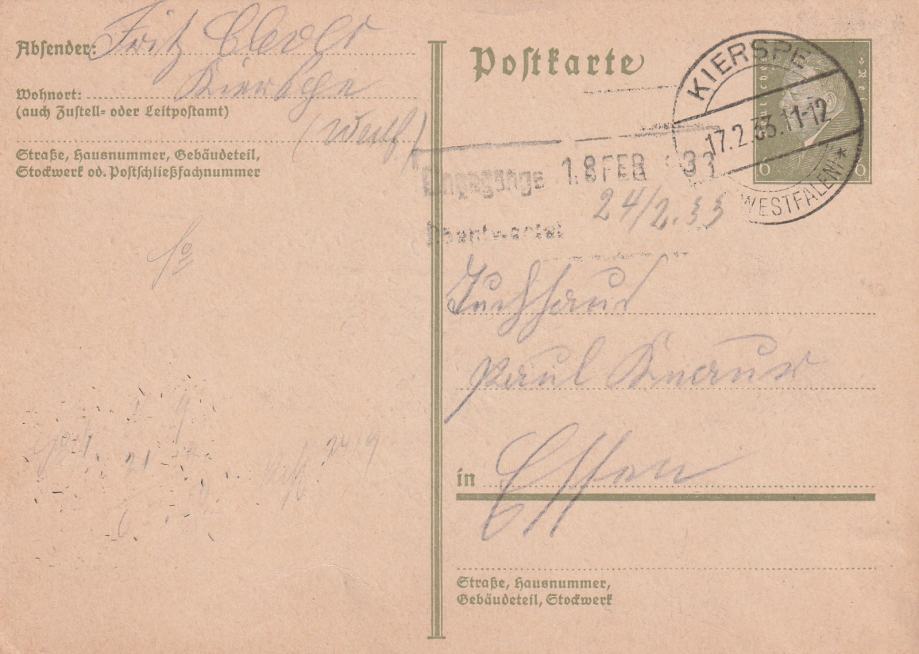 Absender: Fritz Clever
Wohnort: Kierspe
(auch Zustell- oder Leitpostamt)
(Westf.)
Straße, Hausnummer, Gebäudeteil,
Stockwerk od. Postschließfachnummer
Postkarte
KIERSPE
17.2.33.11-12
(WESTFALEN)*
6 6
Eingegangen 18 FEB 1933
24/2.33
Beantwortet
Tuchhaus
Paul Knaur
in Essen
Straße, Hausnummer,
Gebäudeteil, Stockwerk